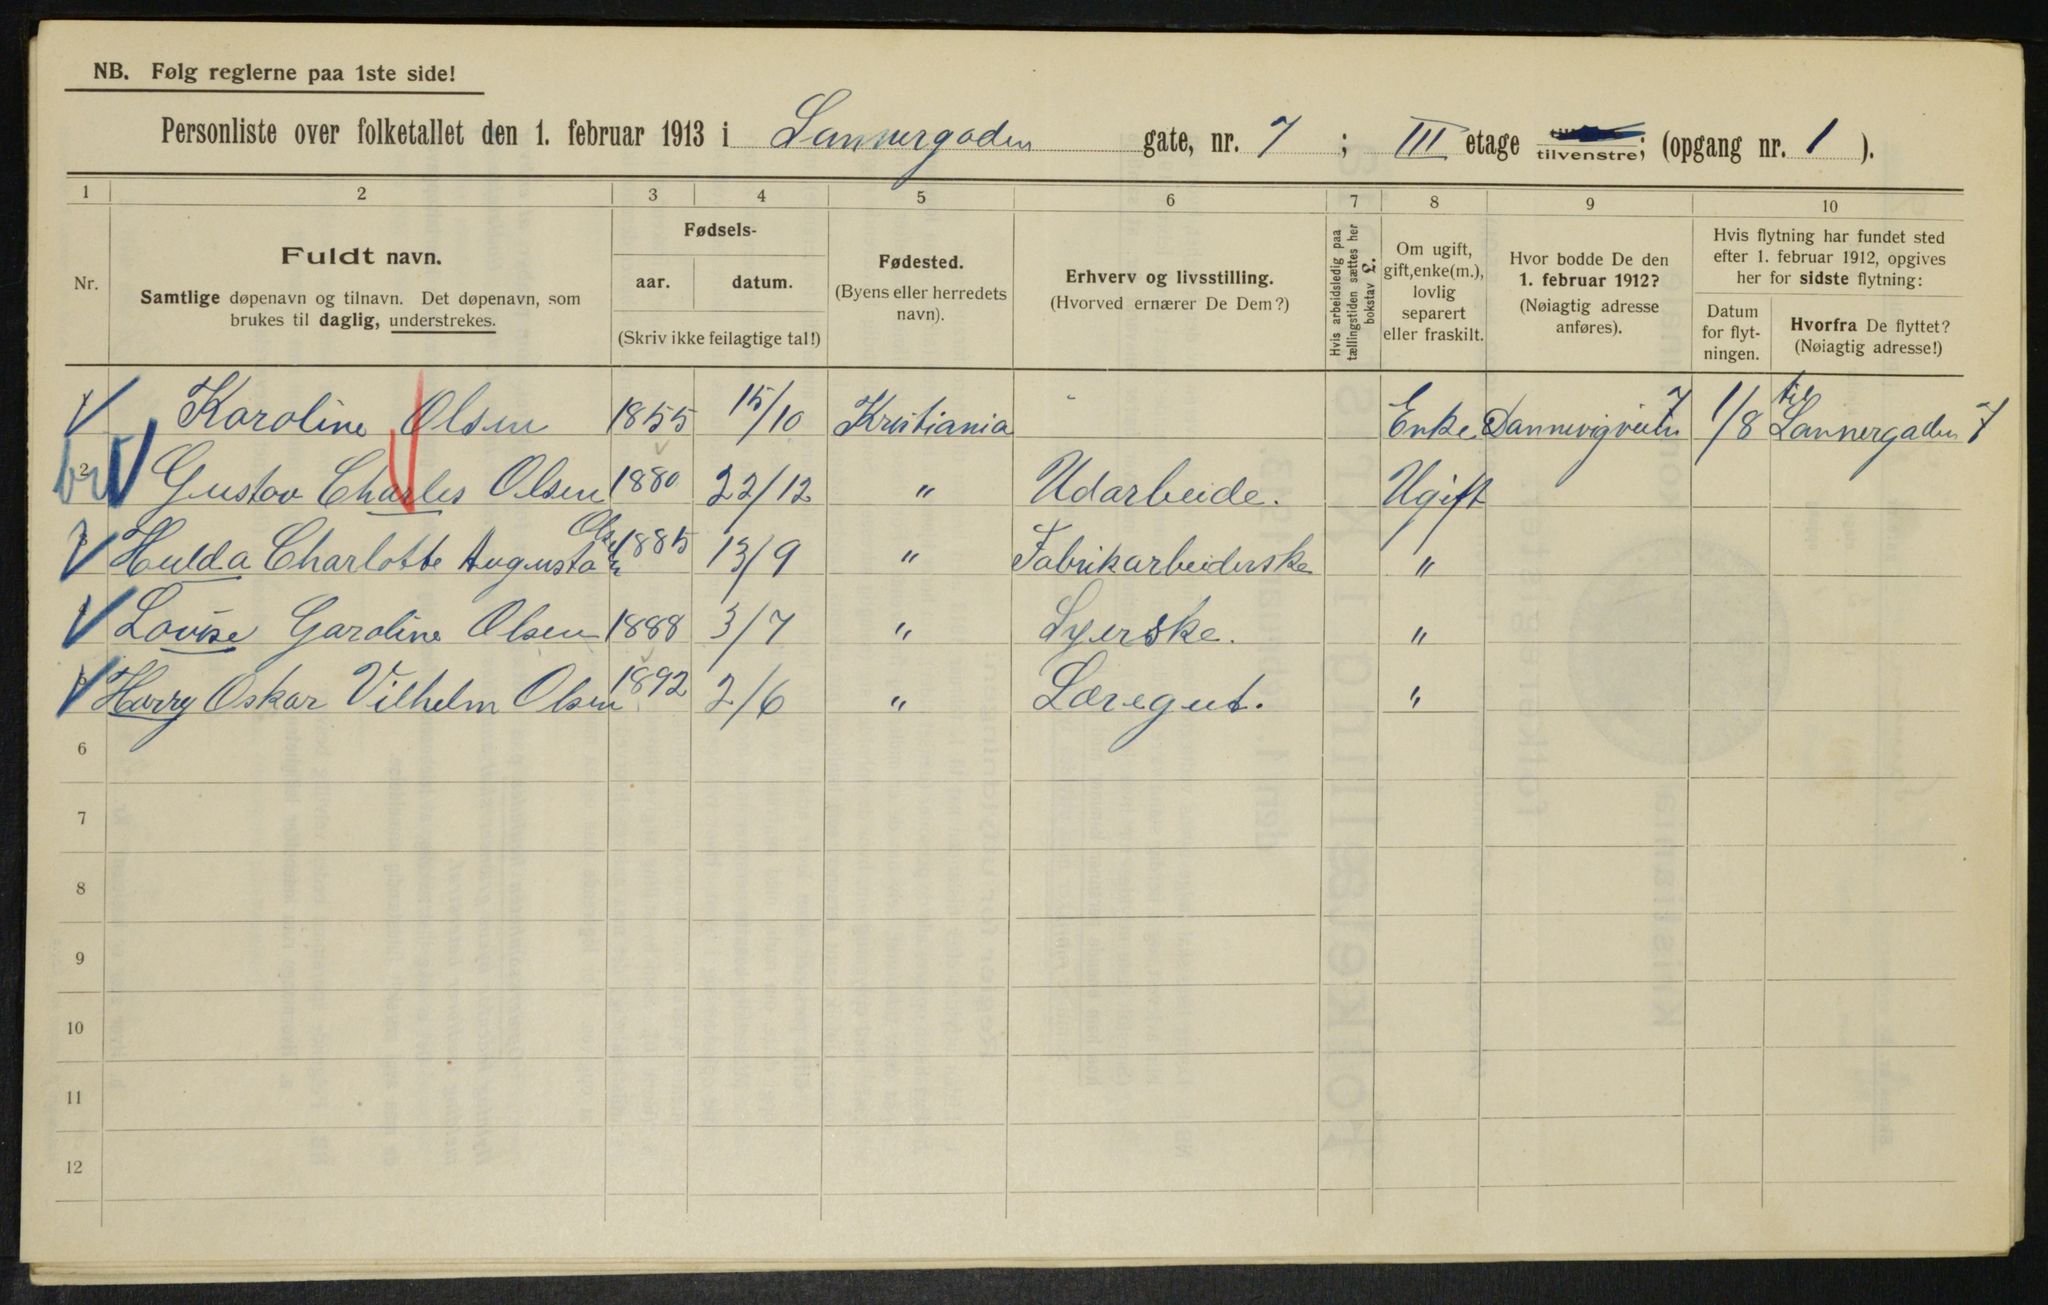 NB. Følg reglerne paa 1ste side!
Personliste over folketallet den 1. februar 1913 i Lannergaden gate, nr. 7 ; III etage tilvenstre; (opgang nr. 1 ).
1 2 3 4 5 6 7 8 9 10
Nr.
Fuldt navn.
Samtlige døpenavn og tilnavn. Det døpenavn, som
brukes til daglig, understrekes.
Fødsels-
aar. datum.
(Skriv ikke feilagtige tal!)
Fødested.
(Byens eller herredets
navn).
Erhverv og livsstilling.
(Hvorved ernærer De Dem?)
Hvis arbeidsledig paa
tællingstiden sættes her
bokstav £.
Om ugift,
gift, enke(m.),
lovlig
separert
eller fraskilt.
Hvor bodde De den
1. februar 1912?
(Nøiagtig adresse
anføres).
Hvis flytning har fundet sted
efter 1. februar 1912, opgives
her for sidste flytning:
Datum
for flyt-
ningen.
Hvorfra De flyttet?
(Nøiagtig adresse!)
1 Karoline Olsen 1855 15/10 Kristiania " Enke Dannevigveien 7 1/8 til Lannergaden 7
2 Gustav Charles Olsen 1880 22/12 " Udarbeide. Ugift
3 Hulda Charlotte Augusta Olsen 1885 13/9 " Fabrikarbeiderske "
4 Louise Caroline Olsen 1888 3/7 " Syerske. "
5 Harry Oskar Vilhelm Olsen 1892 2/6 " Læregut. "
6
7
8
9
10
11
12